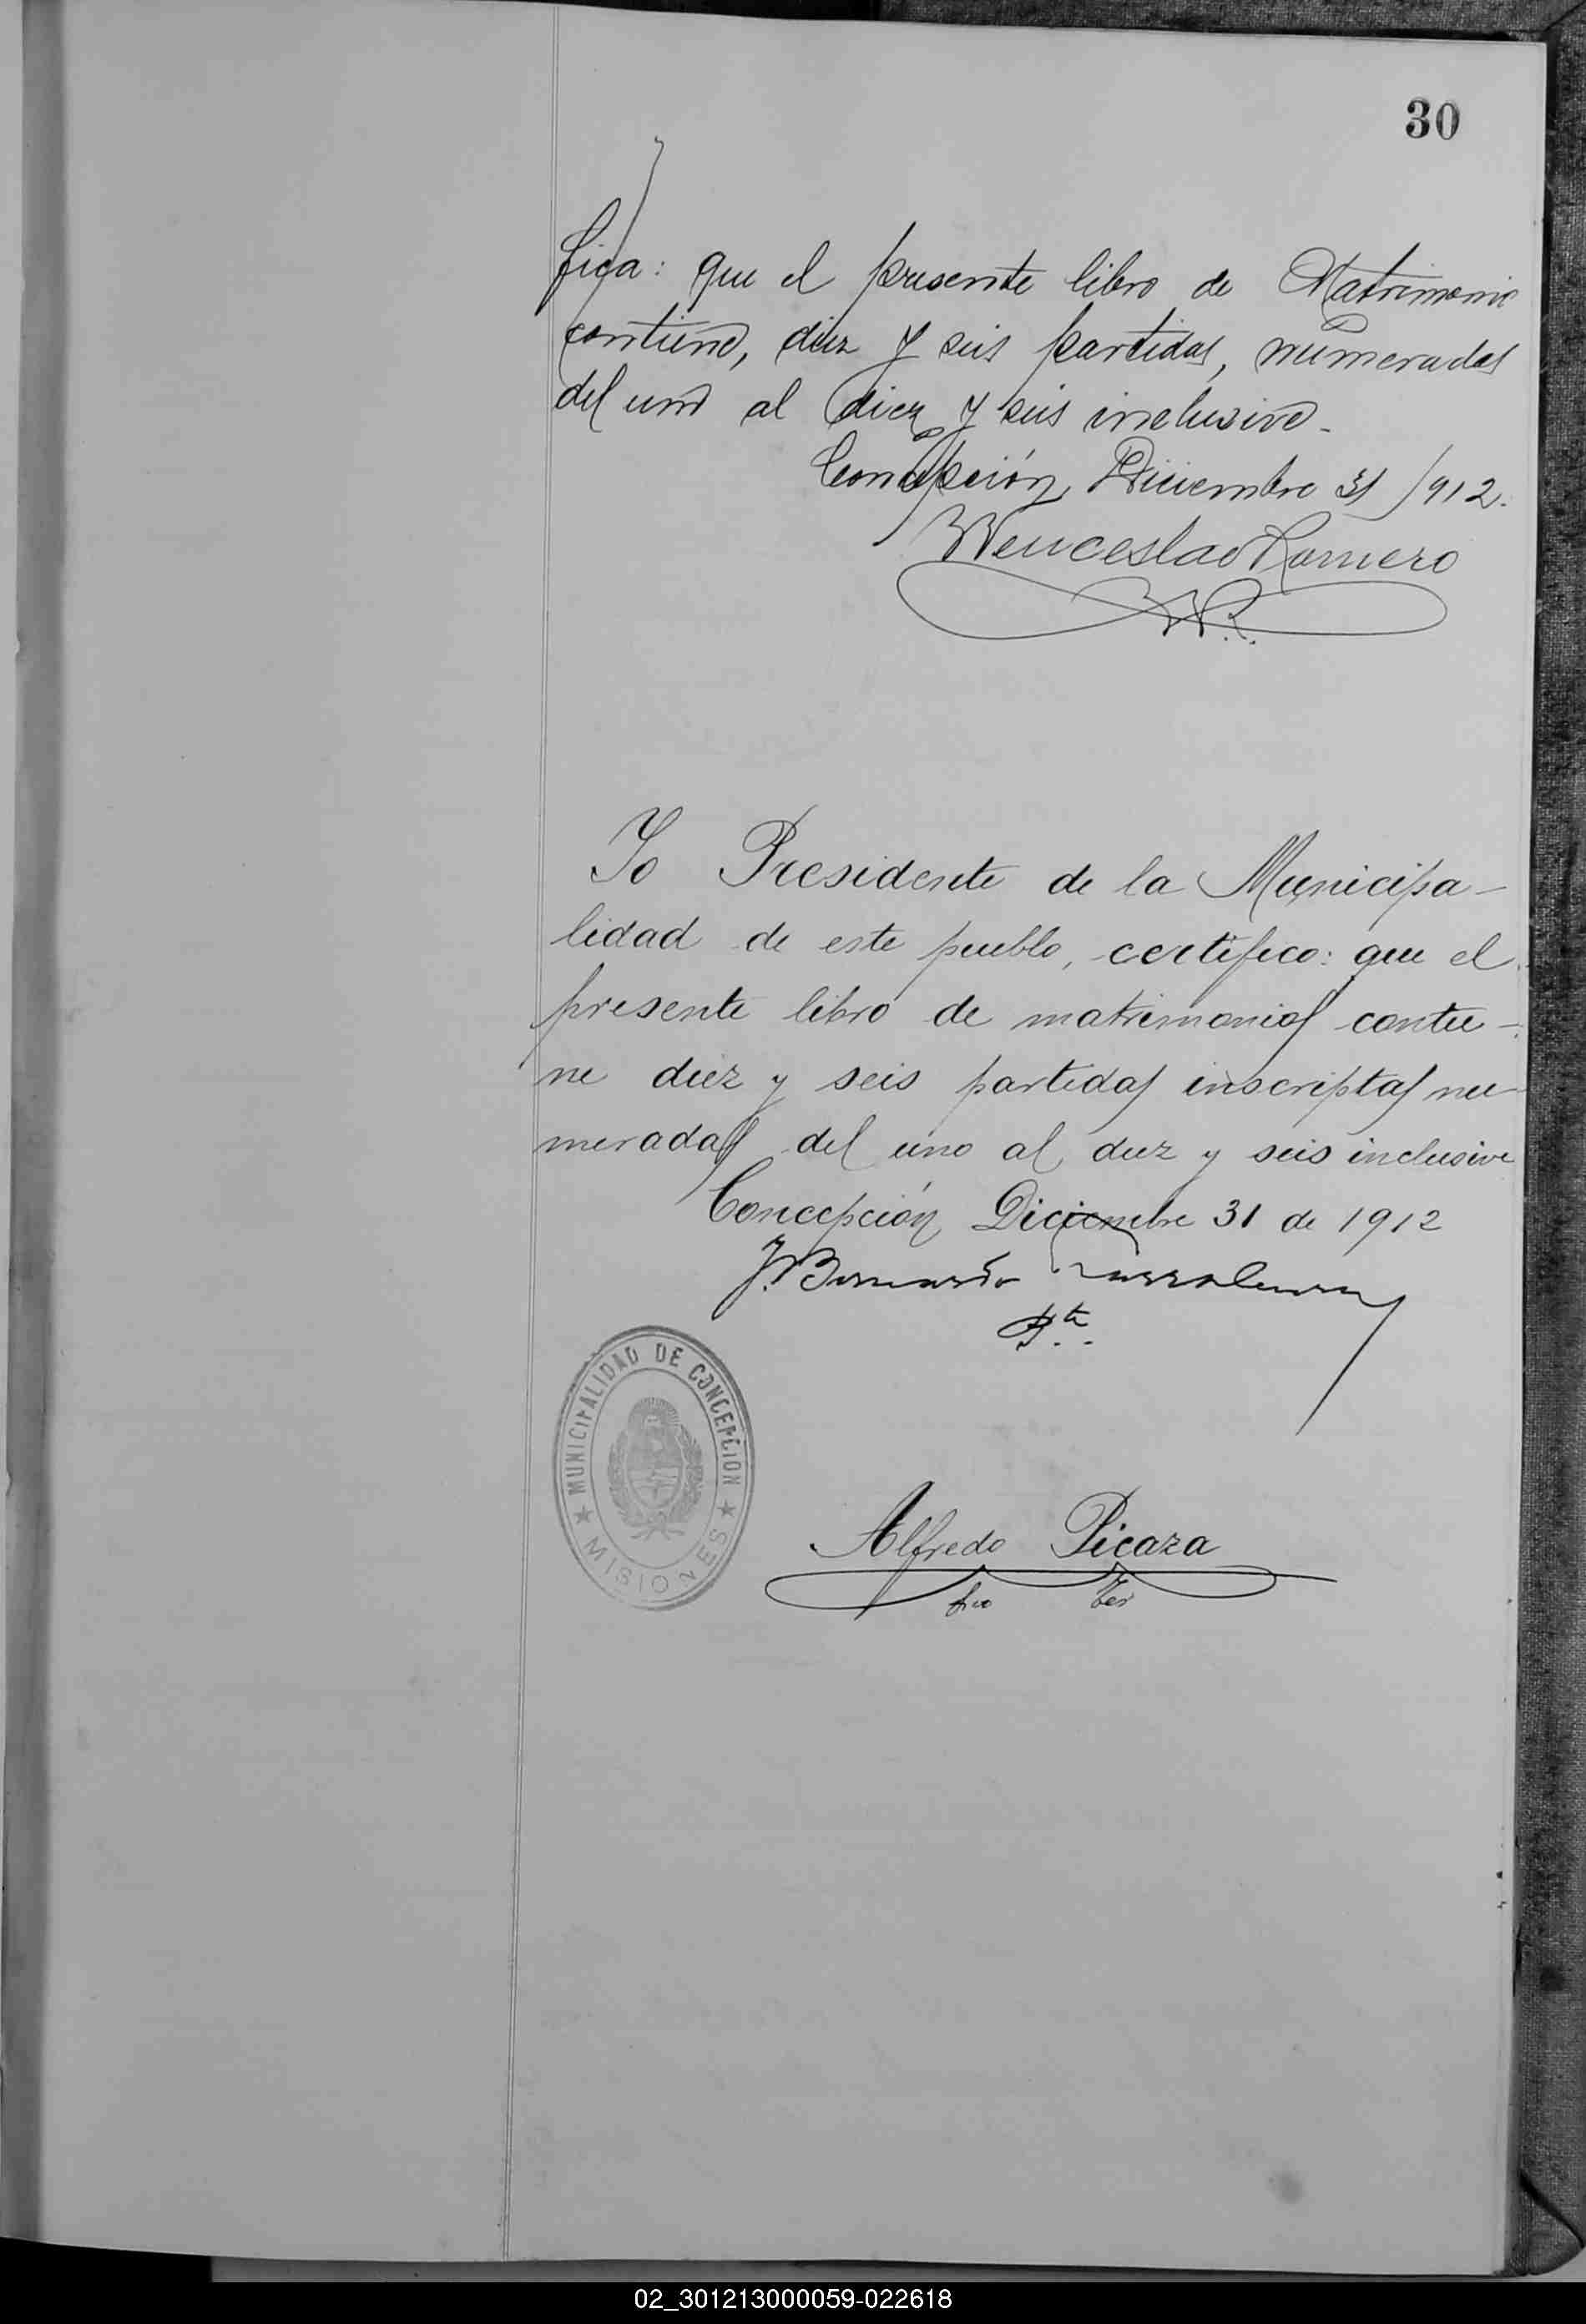 30
fica: que el presente libro de Matrimonio
contiene, diez y seis partidas, numeradas
del uno al diez y seis inclusive.
Concepción, Diciembre 31/912.
Wenceslao Romero
WR.
Yo Presidente de la Municipa-
lidad de este pueblo, certifico: que el
presente libro de matrimonios contie-
ne diez y seis partidas inscriptas nu-
meradas del uno al diez y seis inclusive
Concepción Diciembre 31 de 1912
J. Bernardo
Pte.
MUNICIPALIDAD DE CONCEPCION
MISIONES
Alfredo Picaza
02_301213000059-022618